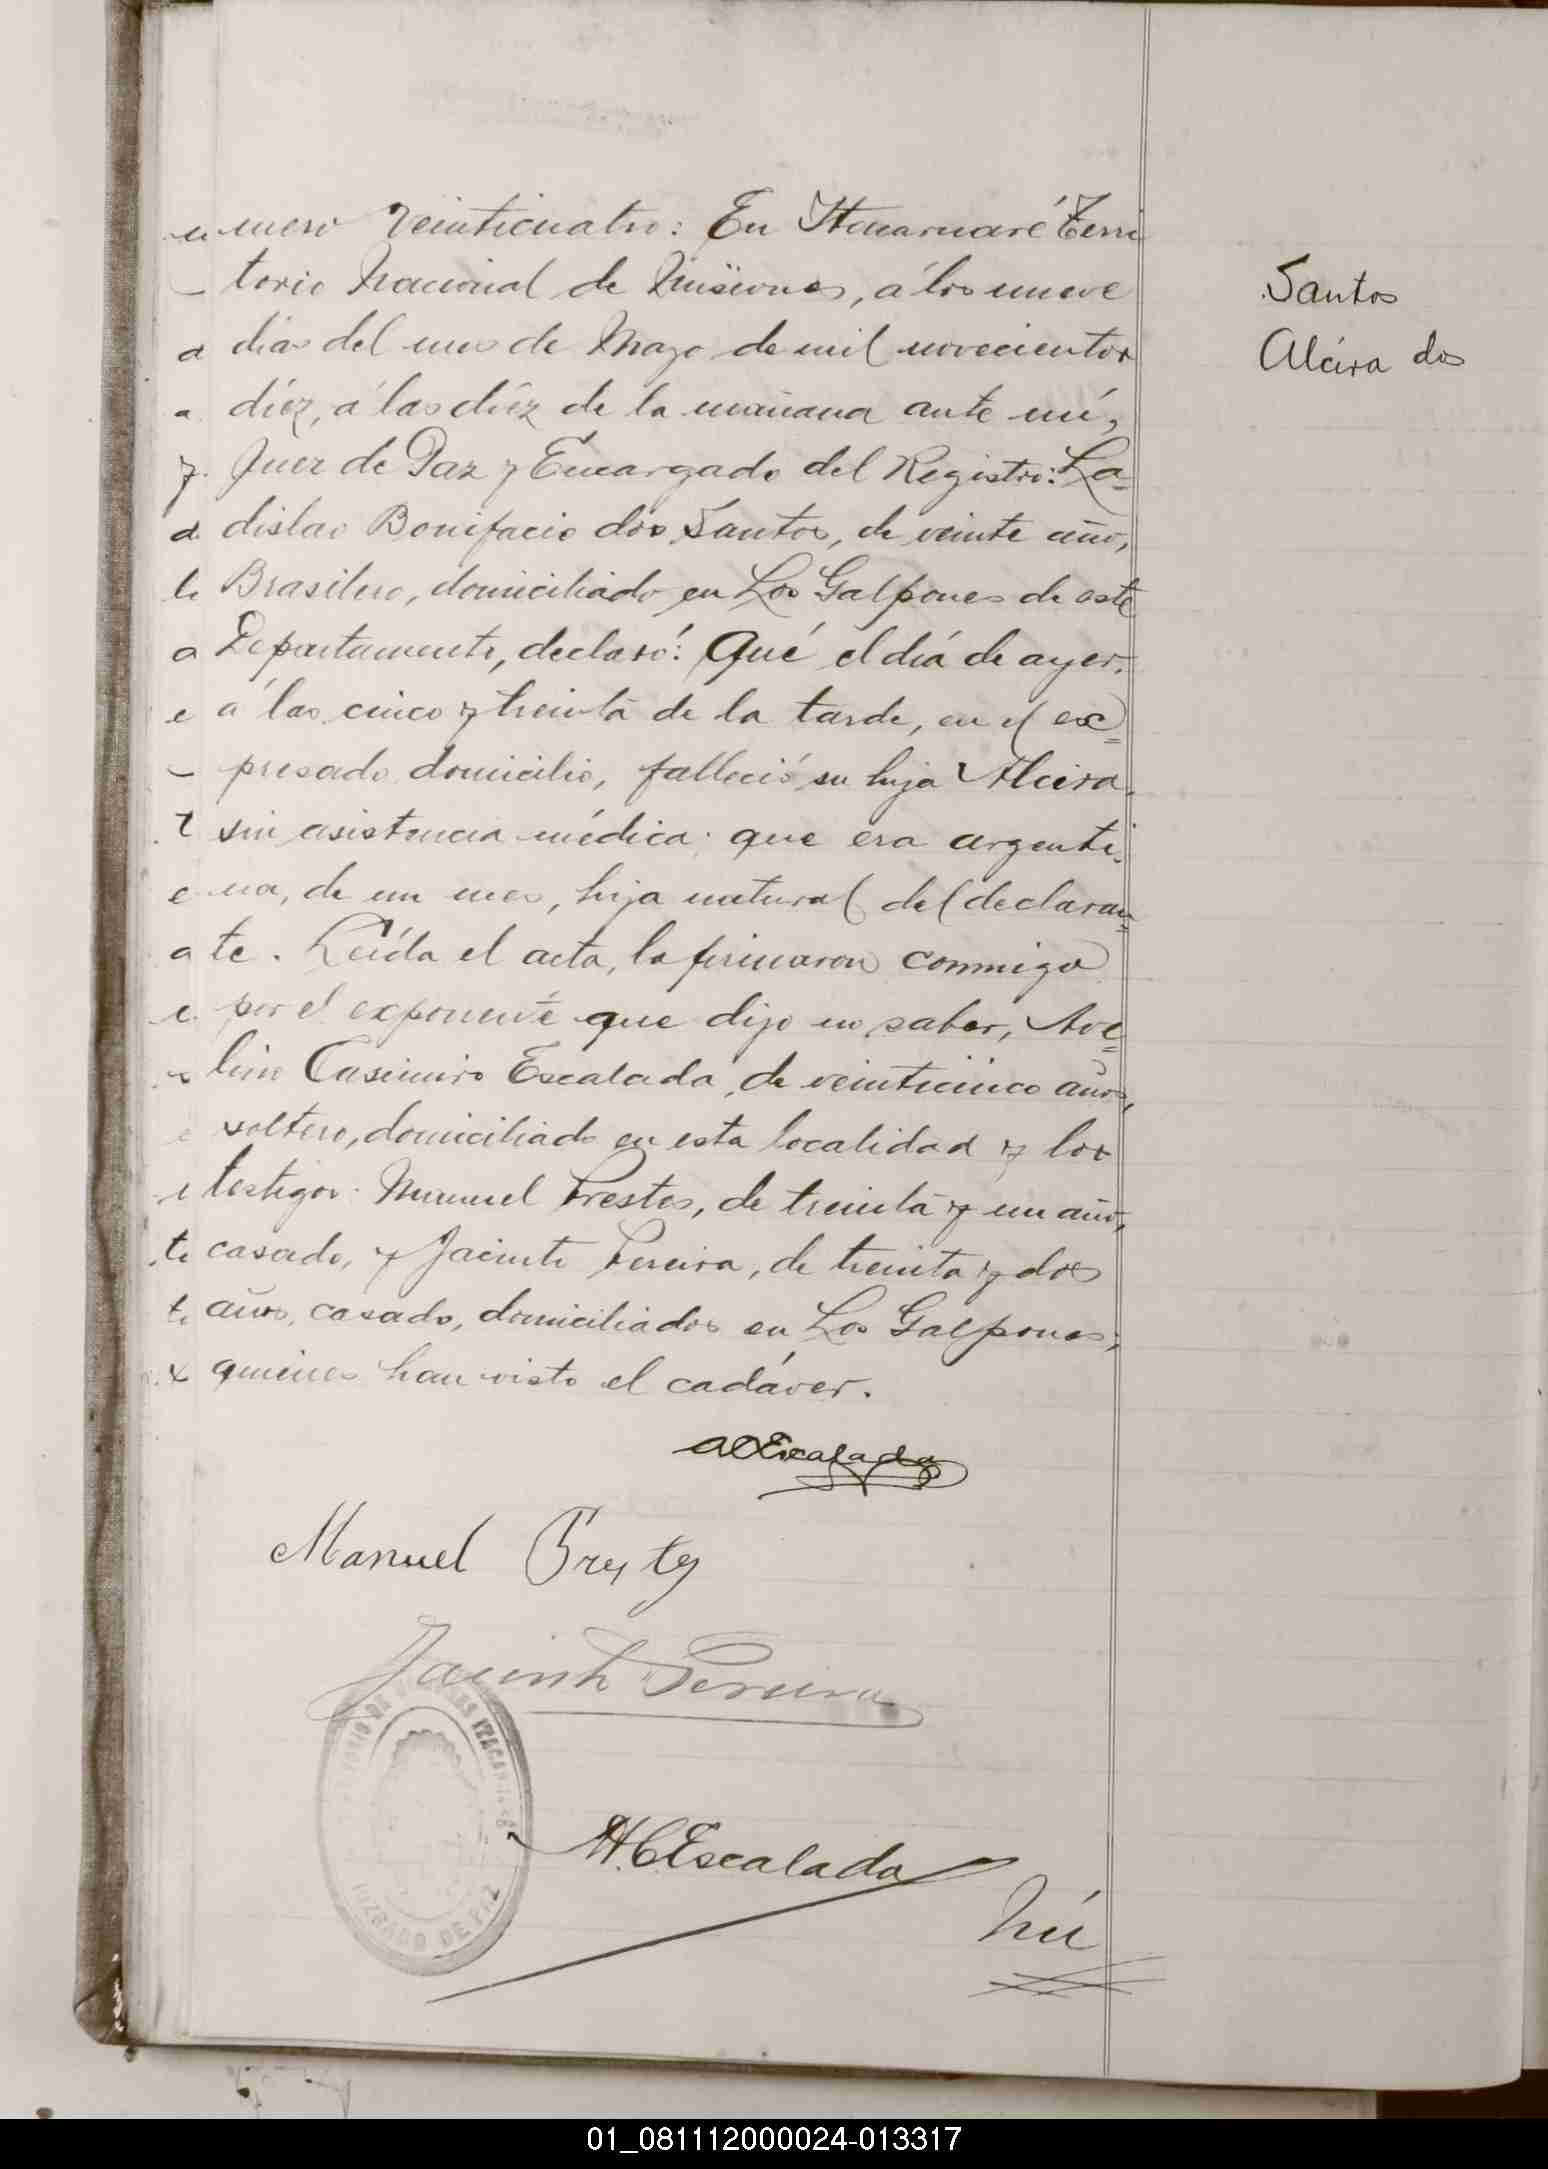 numero Veinticuatro: En Itacaruaré Terri
torio Nacional de Misiones, á los nueve
dias del mes de Mayo de mil novecientos
diéz, á las diéz de la mañana ante mí,
Juez de Paz y Encargado del Registro: La=
dislao Bonifacio dos Santos, de veinte años,
Brasilero, domiciliado en Los Galpones de este
Departamento, declaró: Qué el día de ayer,
á las cinco y treinta de la tarde, en el ex=
presado domicilio, falleció su hija Alcira,
sin asistencia médica; que era argenti-
na, de un mes, hija natural del declaran=
te. Leída el acta, la firmaron conmigo
por el exponente que dijo no saber, Ave=
lino Casimiro Escalada, de veinticinco años,
soltero, domiciliado en esta localidad y los
testigos: Manuel Prestes, de treinta y un años,
casado, y Jacinto Pereira, de treinta y dos
años, casado, domiciliados en Los Galpones,
quienes han visto el cadáver.
Santos
Alcira dos
ACEscalada
Manuel Prestes
Jacinto Pereira
ITACARUARÉ
JUZGADO DE PAZ
H.C.Escalada
01_081112000024-013317